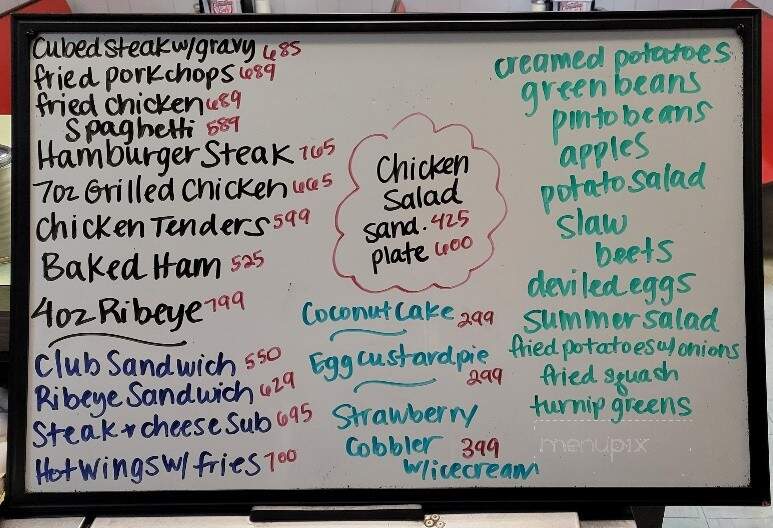 Cubed steak w/gravy 685
fried porkchops 689
fried chicken 689
Spaghetti 589
Hamburger Steak 765
7oz Grilled Chicken 665
Chicken Tenders 599
Baked Ham 525
4oz Ribeye 799
Club Sandwich 550
Ribeye Sandwich 629
Steak + cheese Sub 695
Hot wings w/ fries 700
Chicken
Salad
sand. 425
plate 600
Coconut Cake 299
Egg custard pie
299
Strawberry
Cobbler 399
w/icecream
creamed potatoes
green beans
pinto beans
apples
potato salad
Slaw
beets
deviled eggs
Summer salad
fried potatoes w/ onions
fried squash
turnip greens
menupix